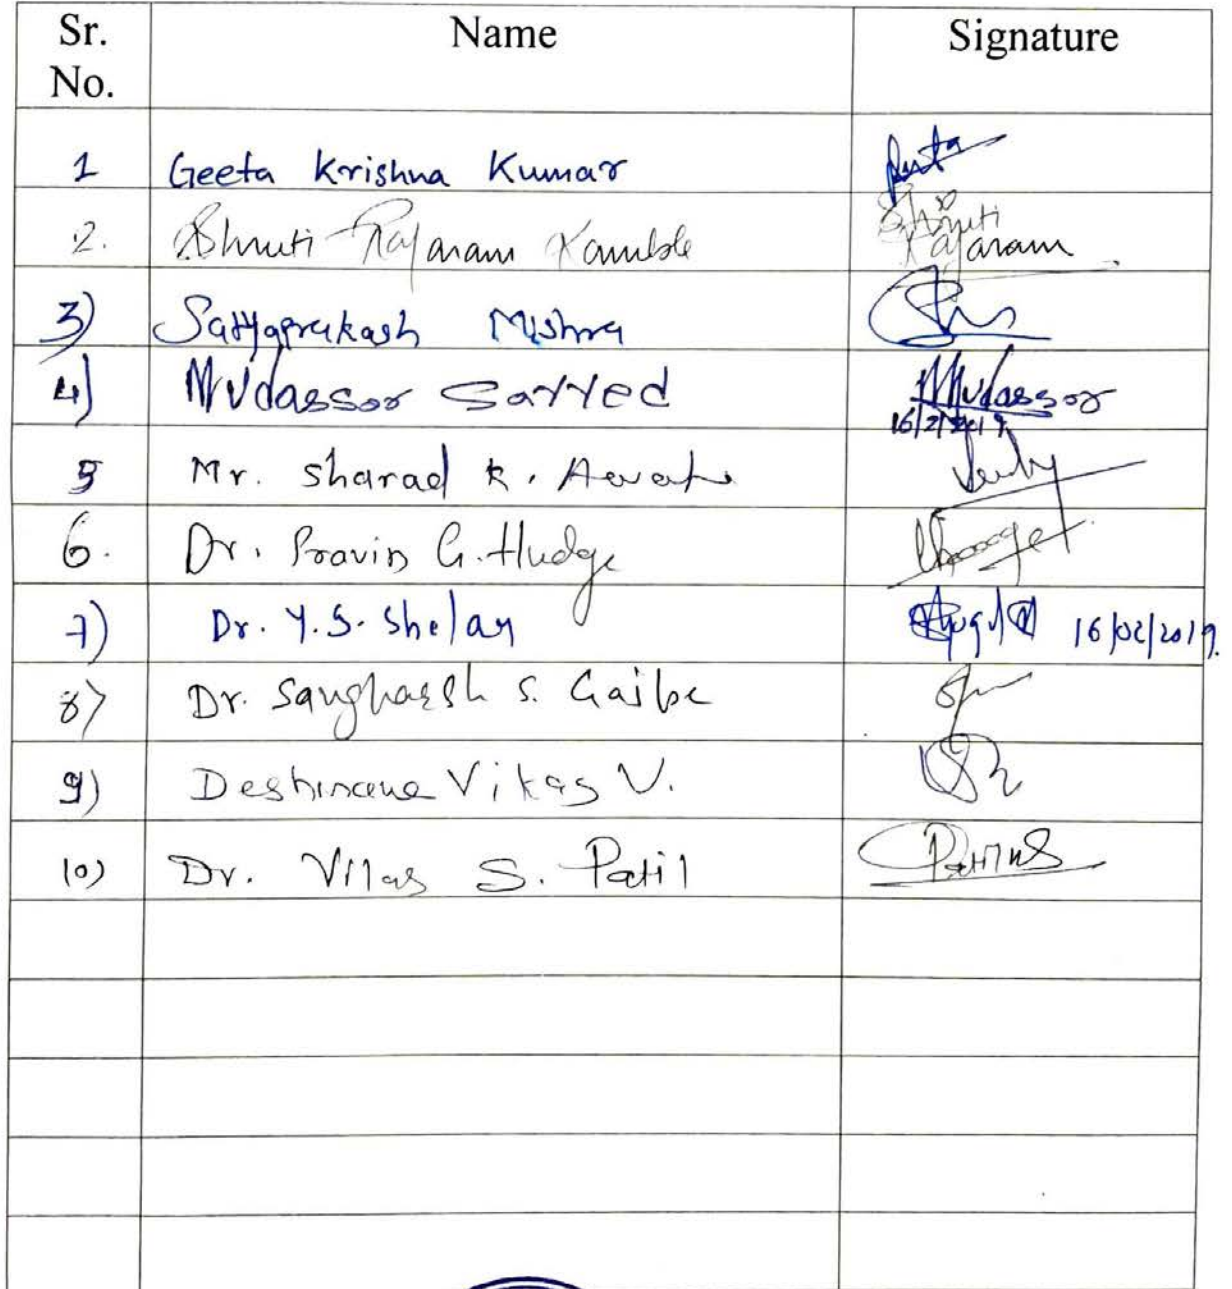 Sr. No. Name Signature
1 Geeta Krishna Kumar
2. Shruti Rajaram Kamble Shruti
Rajaram
3) Satyaprakash Mishra
4) Mudassor Sayyed Mudassor
16/2/2019
5 Mr. Sharad R.
6. Dr. Pravin G. Hudge
7) Dr. Y.S. Shelar 16/02/2019.
8) Dr. Sangharsh S. Gaibe
9) Vikas V.
10) Dr. Vilas S. Patil